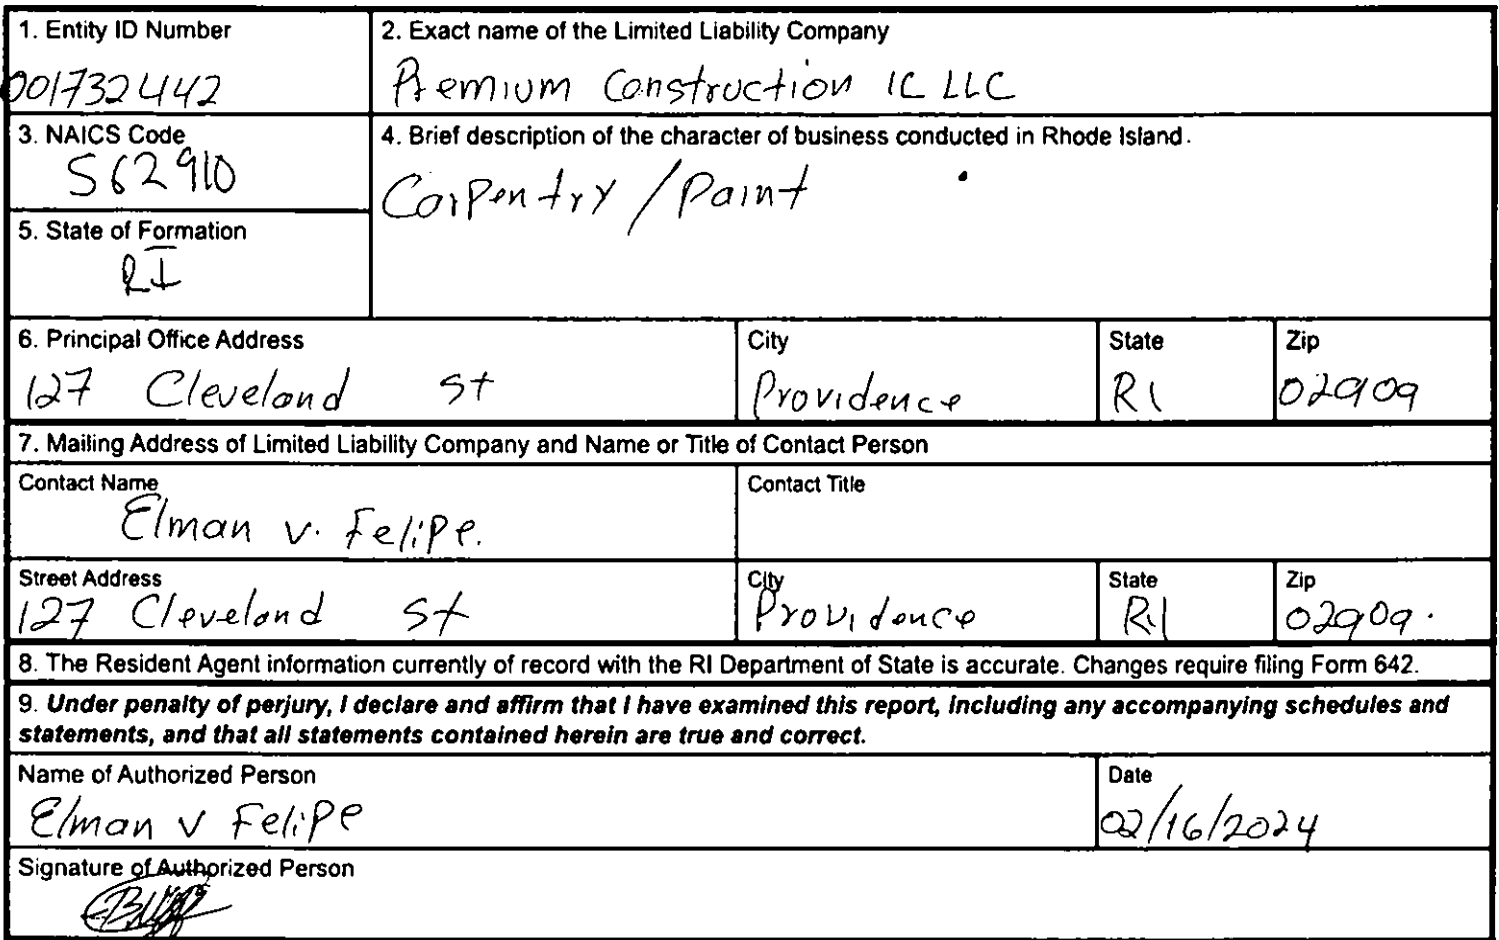 1. Entity ID Number
001732442
2. Exact name of the Limited Liability Company
Premium Construction IC LLC
3. NAICS Code
562910
4. Brief description of the character of business conducted in Rhode Island.
Carpentry / Paint
5. State of Formation
RI
6. Principal Office Address
127 Cleveland St
City
Providence
State
RI
Zip
02909
7. Mailing Address of Limited Liability Company and Name or Title of Contact Person
Contact Name
Elman v. Felipe.
Contact Title
Street Address
127 Cleveland St
City
Providence
State
RI
Zip
02909.
8. The Resident Agent information currently of record with the RI Department of State is accurate. Changes require filing Form 642.
9. Under penalty of perjury, I declare and affirm that I have examined this report, including any accompanying schedules and
statements, and that all statements contained herein are true and correct.
Name of Authorized Person
Elman v Felipe
Date
02/16/2024
Signature of Authorized Person